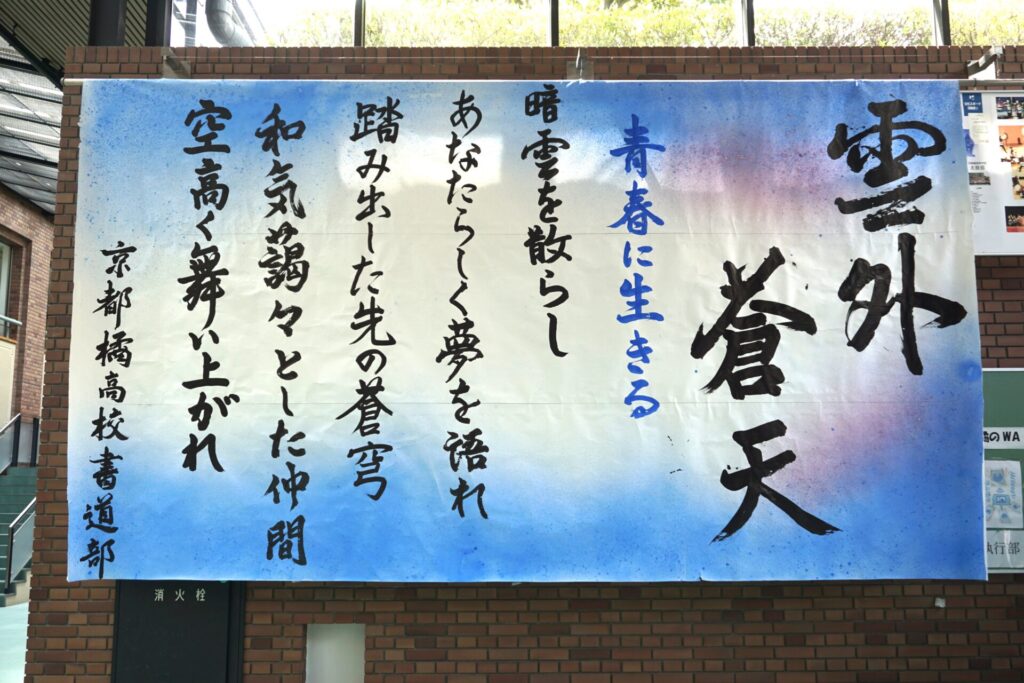 雲外
蒼天
青春に生きる
暗雲を散らし
あなたらしく夢を語れ
踏み出した先の蒼穹
和気藹々とした仲間
空高く舞い上がれ
京都橘高校書道部
消火栓
のWA
執行部